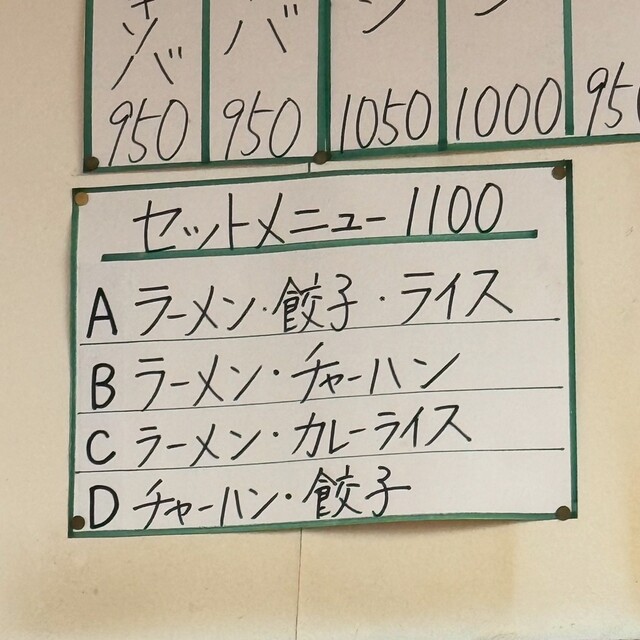 キソバ 950
バ 950
1050
1000
950
セットメニュー 1100
A ラーメン・餃子・ライス
B ラーメン・チャーハン
C ラーメン・カレーライス
D チャーハン・餃子